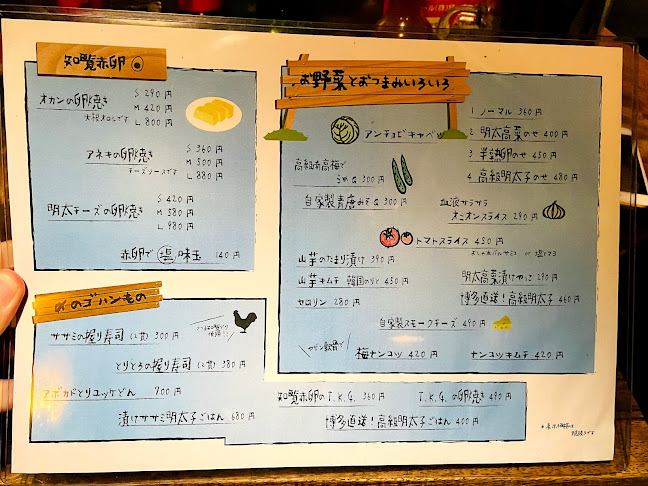 知覧赤卵
オカンの卵焼き
S 290円
M 420円
L 800円
大根オロシです
アネキの卵焼き
S 360円
M 500円
L 880円
チーズソースです
明太チーズの卵焼き
S 420円
M 580円
L 980円
赤卵で塩味玉 140円
〆のゴハンもの
ササミの握り寿司(2貫) 300円
とりとろの握り寿司(2貫) 380円
アボカドとりユッケどん 700円
漬けササミ明太子ごはん 680円
お野菜とおつまみいろいろ
アンチョビキャベツ
1 ノーマル 360円
2 明太高菜のせ 400円
3 半熟卵のせ 450円
4 高級明太子のせ 480円
高級南高梅で
うめQ 300円
自家製青唐みそQ 300円
血液サラサラ
オニオンスライス 290円
トマトスライス 450円
山芋のたまり漬け 390円
山芋キムチ 韓国のりと 450円
セロリン 280円
明太高菜漬け 290円
博多直送!高級明太子 460円
自家製スモークチーズ 490円
梅ナンコツ 420円
ナンコツキムチ 420円
知覧赤卵のT.K.G. 360円
T.K.G.の卵焼き 490円
博多直送!高級明太子ごはん 400円